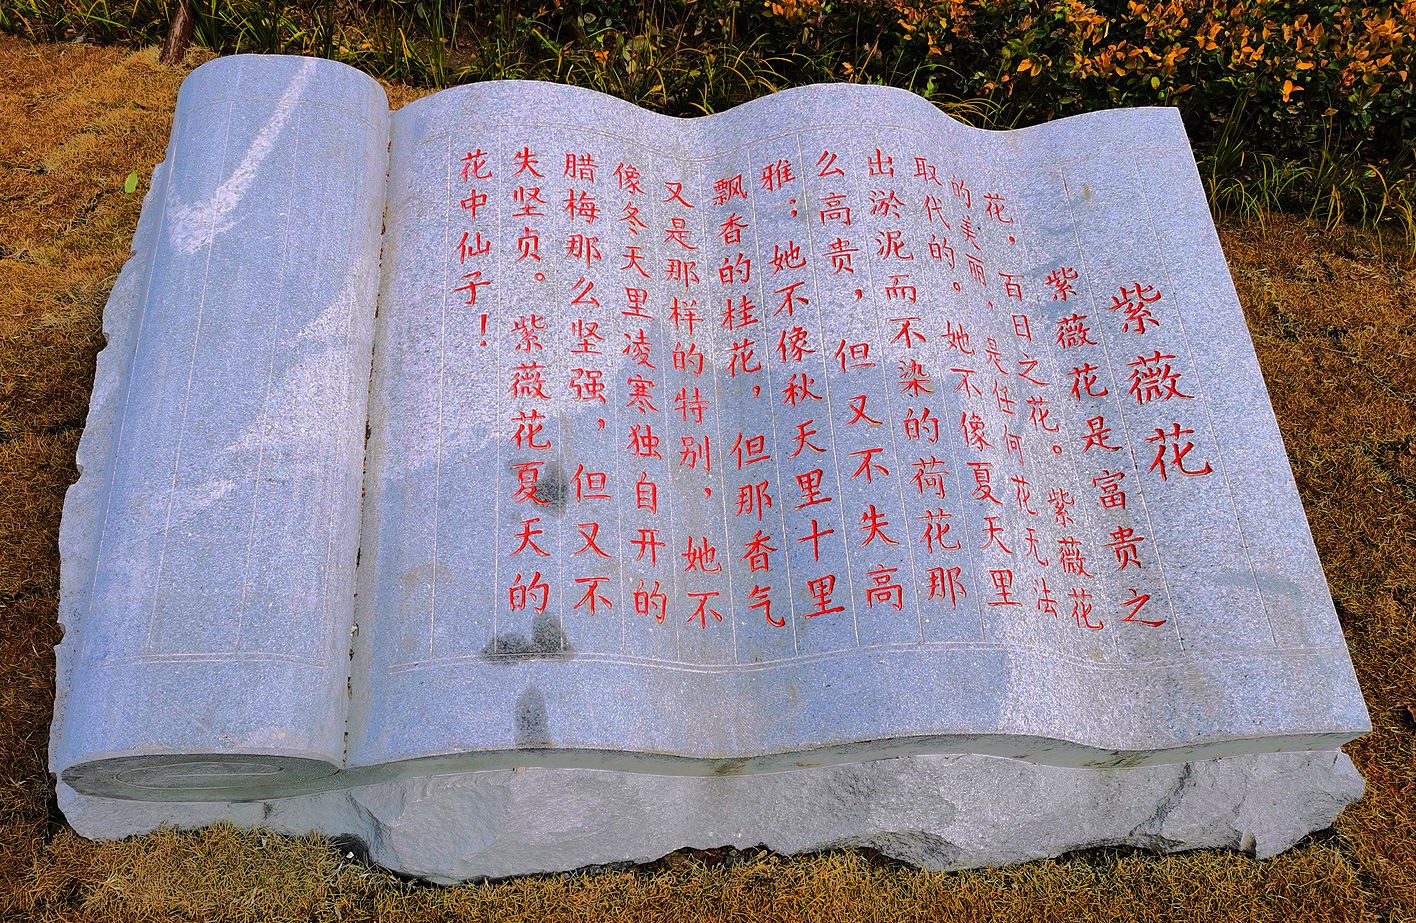 紫薇花
紫薇花是富贵之
花，百日之花。紫薇花
的美丽，是任何花无法
取代的。她不像夏天里
出淤泥而不染的荷花那
么高贵，但又不失高
雅；她不像秋天里十里
飘香的桂花，但那香气
又是那样的特别，她不
像冬天里凌寒独自开的
腊梅那么坚强，但又不
失坚贞。紫薇花夏天的
花中仙子！